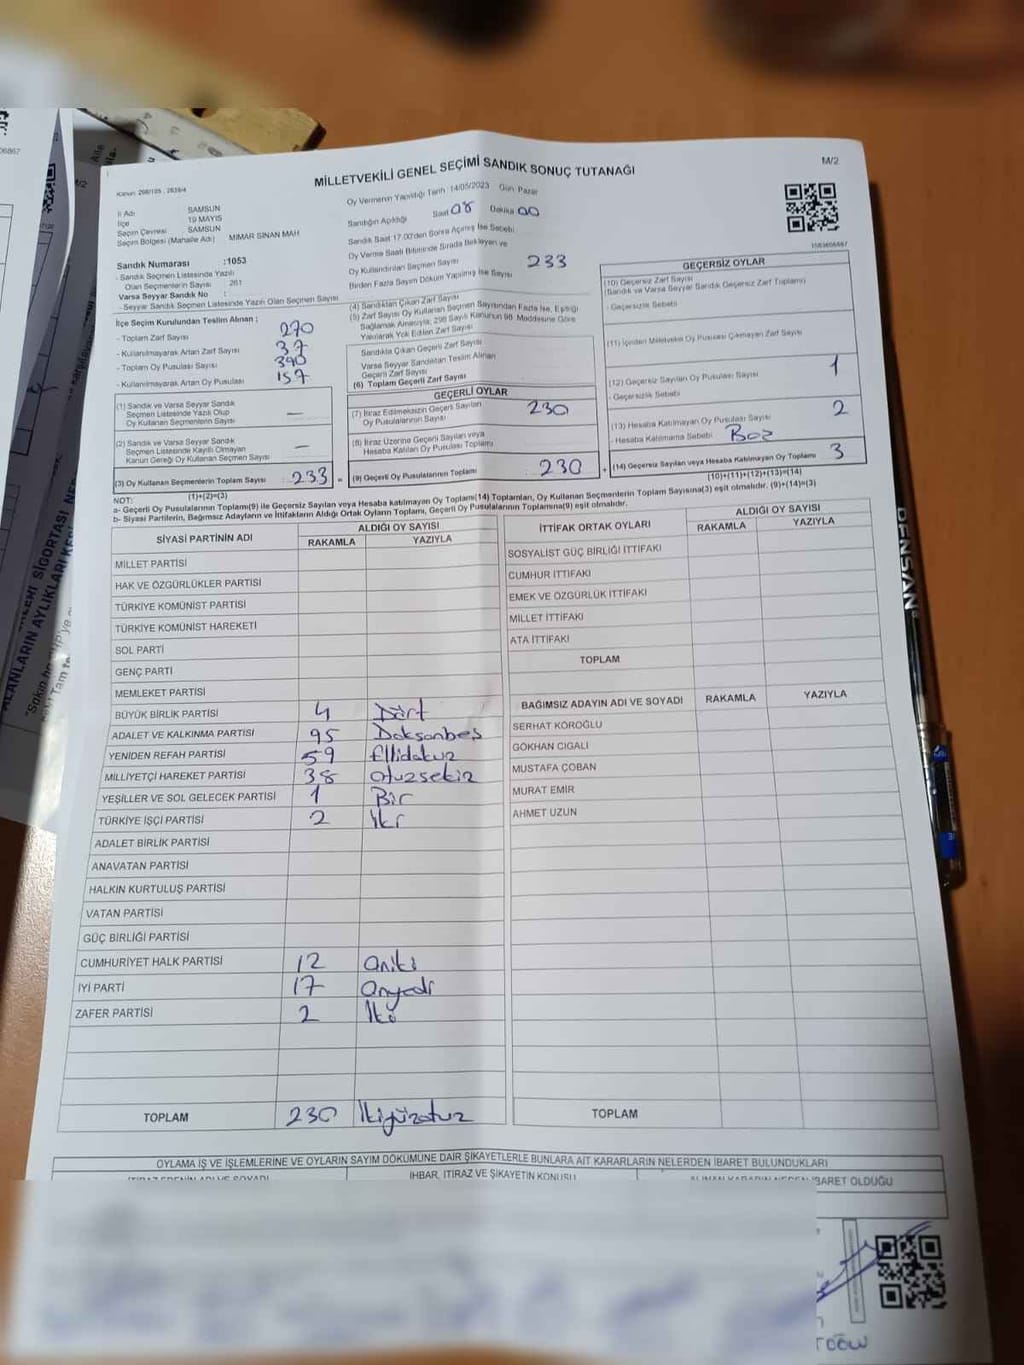 MİLLETVEKİLİ GENEL SEÇİMİ SANDIK SONUÇ TUTANAĞI
M/2
İl Adı SAMSUN
İlçe 19 MAYIS
Seçim Çevresi SAMSUN
Seçim Bölgesi (Mahalle Adı) MİMAR SİNAN MAH.
Sandık Numarası :1053
- Sandık Seçmen Listesinde Yazılı
Olan Seçmenlerin Sayısı : 261
Varsa Seyyar Sandık No :
- Seyyar Sandık Seçmen Listesinde Yazılı Olan Seçmen Sayısı
Oy Vermenin Yapıldığı Tarih 14/05/2023 Gün Pazar
Sandığın Açıldığı Saat 08 Dakika 00
Sandık Saat 17.00'den Sonra Açılmış İse Sebebi
Oy Verme Saati Bitiminde Sırada Bekleyen ve
Oy Kullandırılan Seçmen Sayısı 233
Birden Fazla Sayım Döküm Yapılmış İse Sayısı
İlçe Seçim Kurulundan Teslim Alınan :
- Toplam Zarf Sayısı 270
- Kullanılmayarak Artan Zarf Sayısı 37
- Toplam Oy Pusulası Sayısı 390
- Kullanılmayarak Artan Oy Pusulası 157
(1) Sandık ve Varsa Seyyar Sandık
Seçmen Listesinde Yazılı Olup
Oy Kullanan Seçmenlerin Sayısı —
(2) Sandık ve Varsa Seyyar Sandık
Seçmen Listesinde Kayıtlı Olmayan
Kanun Gereği Oy Kullanan Seçmen Sayısı —
(3) Oy Kullanan Seçmenlerin Toplam Sayısı 233
(1)+(2)=(3)
(4) Sandıktan Çıkan Zarf Sayısı
(5) Zarf Sayısı Oy Kullanan Seçmen Sayısından Fazla İse, Eşitliği
Sağlamak Amacıyla, 298 Sayılı Kanunun 98. Maddesine Göre
Yakılarak Yok Edilen Zarf Sayısı
Sandıkta Çıkan Geçerli Zarf Sayısı
Varsa Seyyar Sandıktan Teslim Alınan
Geçerli Zarf Sayısı
(6) Toplam Geçerli Zarf Sayısı
GEÇERLİ OYLAR
(7) İtiraz Edilmeksizin Geçerli Sayılan
Oy Pusulalarının Sayısı 230
(8) İtiraz Üzerine Geçerli Sayılan veya
Hesaba Katılan Oy Pusulası Toplamı
(9) Geçerli Oy Pusulalarının Toplamı 230
GEÇERSİZ OYLAR
(10) Geçersiz Zarf Sayısı
(Sandık ve Varsa Seyyar Sandık Geçersiz Zarf Toplamı)
- Geçersizlik Sebebi
(11) İçinden Milletvekili Oy Pusulası Çıkmayan Zarf Sayısı
1
(12) Geçersiz Sayılan Oy Pusulası Sayısı
- Geçersizlik Sebebi
2
(13) Hesaba Katılmayan Oy Pusulası Sayısı
- Hesaba Katılmama Sebebi
(14) Geçersiz Sayılan veya Hesaba Katılmayan Oy Pusulası Toplamı 3
(10)+(11)+(12)+(13)=(14)
NOT:
a- Geçerli Oy Pusulalarının Toplamı(9) ile Geçersiz Sayılan veya Hesaba katılmayan Oy Toplamı(14) Toplamları, Oy Kullanan Seçmenlerin Toplam Sayısına(3) eşit olmalıdır. (9)+(14)=(3)
b- Siyasi Partilerin, Bağımsız Adayların ve İttifakların Aldığı Ortak Oyların Toplamı, Geçerli Oy Pusulalarının Toplamına(9) eşit olmalıdır.
SİYASİ PARTİNİN ADI ALDIĞI OY SAYISI
RAKAMLA YAZIYLA
MİLLET PARTİSİ
HAK VE ÖZGÜRLÜKLER PARTİSİ
TÜRKİYE KOMÜNİST PARTİSİ
TÜRKİYE KOMÜNİST HAREKETİ
SOL PARTİ
GENÇ PARTİ
MEMLEKET PARTİSİ
BÜYÜK BİRLİK PARTİSİ 4 Dört
ADALET VE KALKINMA PARTİSİ 95 Doksanbeş
YENİDEN REFAH PARTİSİ 59 Ellidokuz
MİLLİYETÇİ HAREKET PARTİSİ 38 otuzsekiz
YEŞİLLER VE SOL GELECEK PARTİSİ 1 Bir
TÜRKİYE İŞÇİ PARTİSİ 2 İki
ADALET BİRLİK PARTİSİ
ANAVATAN PARTİSİ
HALKIN KURTULUŞ PARTİSİ
VATAN PARTİSİ
GÜÇ BİRLİĞİ PARTİSİ
CUMHURİYET HALK PARTİSİ 12 oniki
İYİ PARTİ 17 onyedi
ZAFER PARTİSİ 2 İki
TOPLAM 230 İkiyüzotuz
İTTİFAK ORTAK OYLARI ALDIĞI OY SAYISI
RAKAMLA YAZIYLA
SOSYALİST GÜÇ BİRLİĞİ İTTİFAKI
CUMHUR İTTİFAKI
EMEK VE ÖZGÜRLÜK İTTİFAKI
MİLLET İTTİFAKI
ATA İTTİFAKI
TOPLAM
BAĞIMSIZ ADAYIN ADI VE SOYADI RAKAMLA YAZIYLA
SERHAT KÖROĞLU
GÖKHAN CIGALI
MUSTAFA ÇOBAN
MURAT EMİR
AHMET UZUN
TOPLAM
OYLAMA İŞ VE İŞLEMLERİNE VE OYLARIN SAYIM DÖKÜMÜNE DAİR ŞİKAYETLERLE BUNLARA AİT KARARLARIN NELERDEN İBARET BULUNDUKLARI
İHBAR, İTİRAZ VE ŞİKAYETİN KONUSU
BARET OLDUĞU
BENSAN